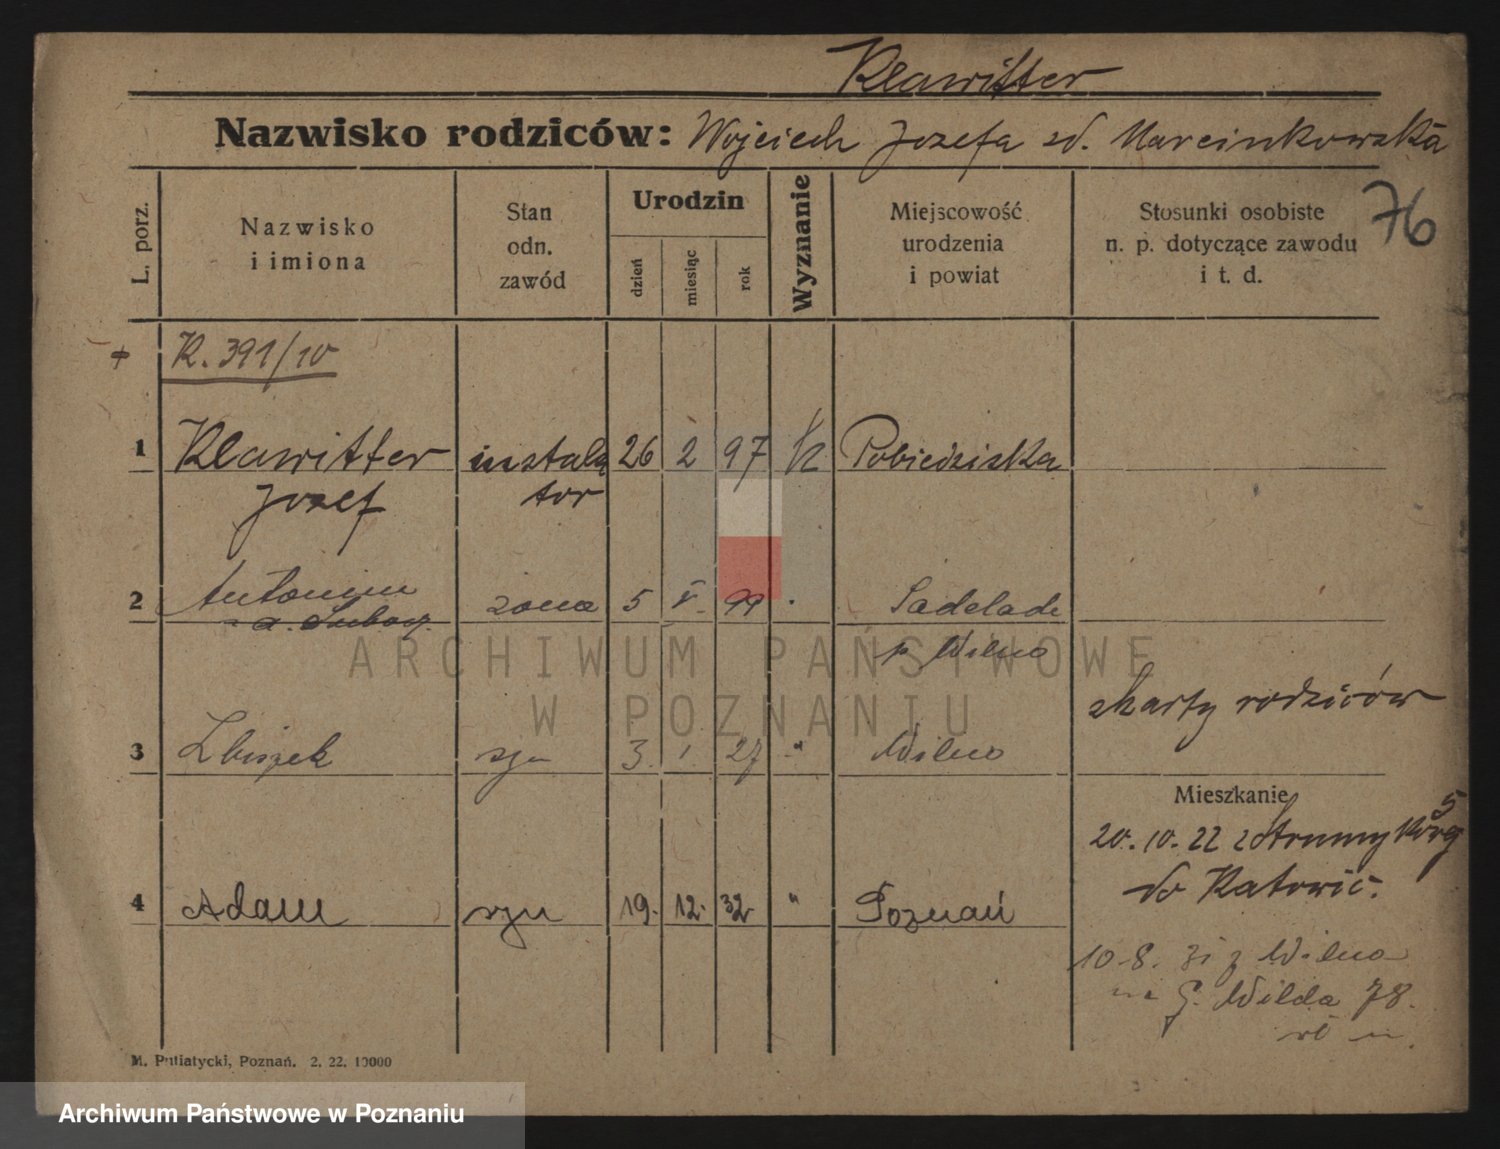 Klawitter
Nazwisko rodziców: Wojciech Jozefa zd. Marcinkowska
76
L. porz.
Nazwisko
i imiona
Stan
odn.
zawód
Urodzin
dzień
miesiąc
rok
Wyznanie
Miejscowość
urodzenia
i powiat
Stosunki osobiste
n. p. dotyczące zawodu
i t. d.
R. 391/10
1 Klawitter instala 26 2 97 k Pobiedziska
Jozef tor
2 Antonina żona 5 V. 99
p. Wilno
z karty rodziców
3 Zbiszek syn 3. 1. 27 " Wilno
Mieszkanie
20. 10. 22
do Katowic.
4 Adam syn 19. 12. 32 " Poznań
10.8. 31 z Wilna
na G. Wilda 78.
M. Putiatycki, Poznań. 2. 22. 10000
ARCHIWUM PAŃSTWOWE
W POZNANIU
Archiwum Państwowe w Poznaniu